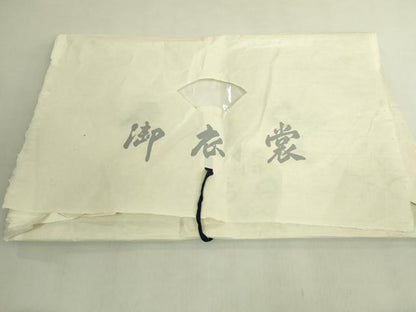 御衣裳